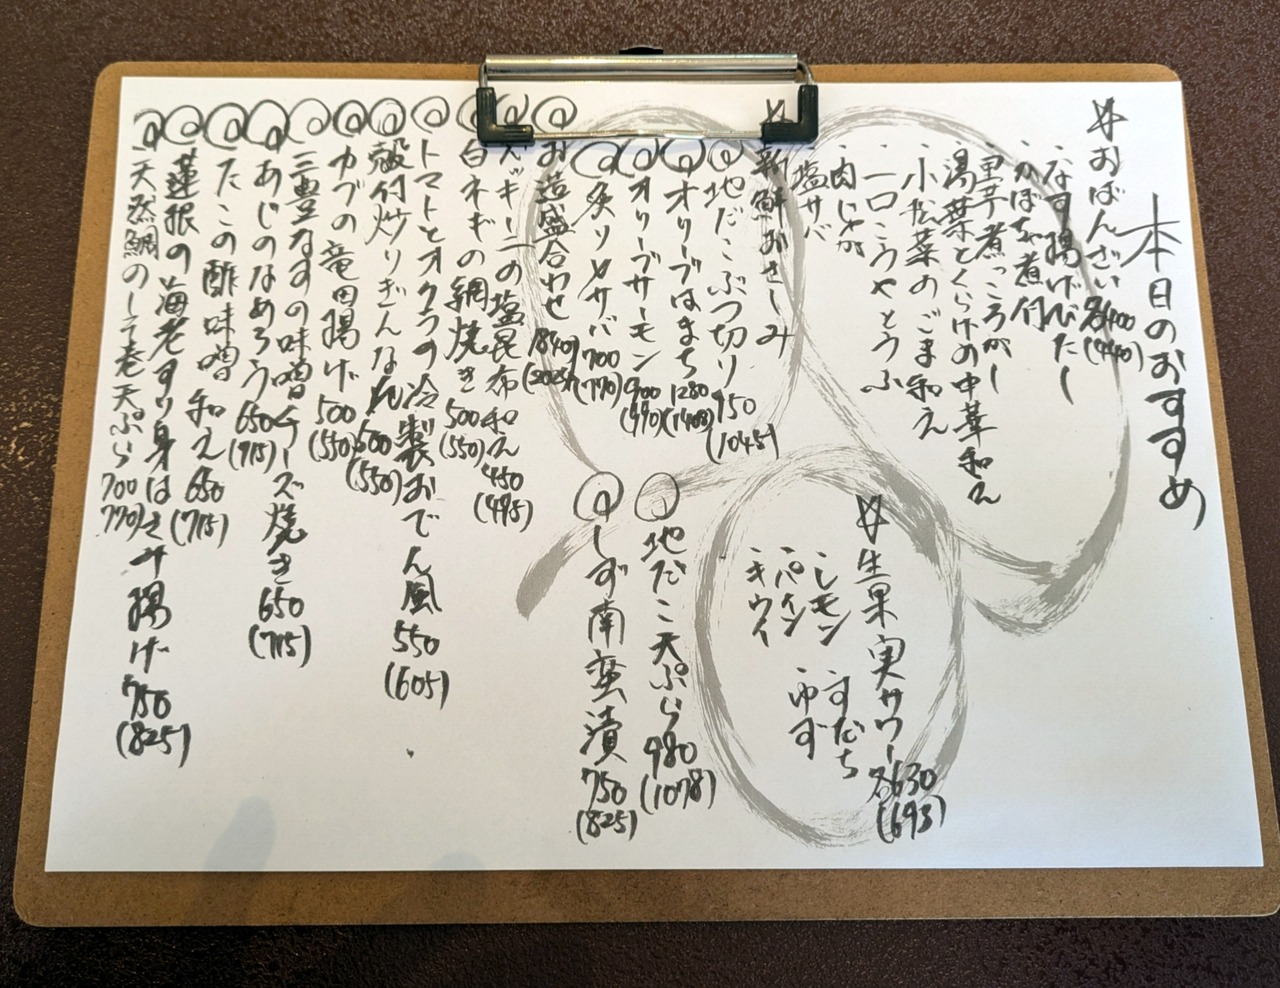 本日のおすすめ
おばんざい 各400(440)
・なす揚げびたし
・かぼちゃ煮付
・里芋煮っころがし
・湯葉とくらげの中華和え
・小松菜のごま和え
・一口こうやとうふ
・肉じゃが
・塩サバ
新鮮おさしみ
地だこぶつ切り 950(1045)
オリーブはまち 1280(1408)
オリーブサーモン 900(990)
炙り〆サバ 700(770)
お造盛合わせ 1840(2025)
ズッキーニの塩昆布和え 450(495)
白ネギの網焼き 500(550)
トマトとオクラの冷製おでん風 550(605)
殻付炒りぎんなん 500(550)
カブの竜田揚げ 500(550)
三豊なすの味噌チーズ焼き 650(715)
あじのなめろう 650(715)
たこの酢味噌和え 650(715)
蓮根の海老すり身はさみ揚げ 750(825)
天然鯛のしそ巻天ぷら 700(770)
生果実サワー 各630(693)
・レモン ・すだち
・パイン ・ゆず
・キウイ
地だこ天ぷら 980(1078)
しず南蛮漬 750(825)